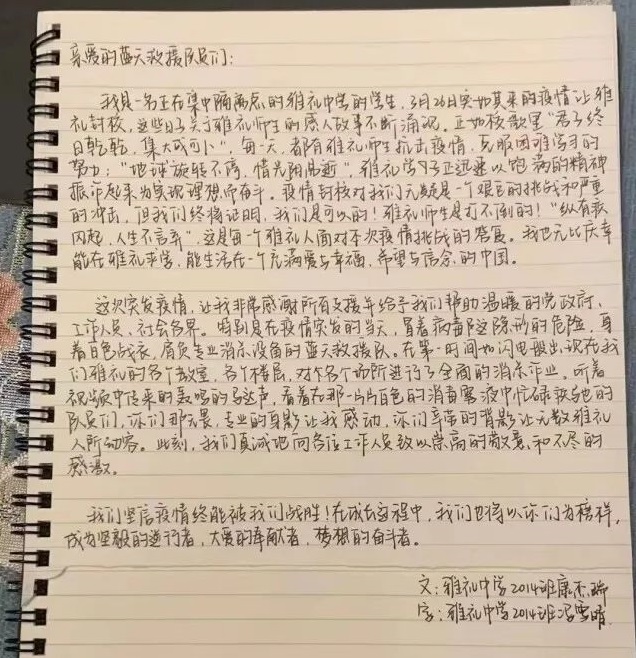 亲爱的蓝天救援队员们:
我是一名正在集中隔离点的雅礼中学的学生,3月26日突如其来的疫情让雅
礼封校,这些日子关于雅礼师生的感人故事不断涌现。正如校歌里“君子终
日乾乾,集大成可卜”,每一天,都有雅礼师生抗击疫情,克服困难学习的
努力;“地球旋转不停,惜光阴易逝”,雅礼学子正迅速以饱满的精神
振作起来为实现理想而奋斗。疫情封校对我们无疑是一个艰巨的挑战和严重
的冲击,但我们终将证明,我们是可以的!雅礼师生是打不倒的!“纵有疾
风起,人生不言弃”这是每一个雅礼人面对本次疫情挑战的答复。我也无比庆幸
能在雅礼求学,能生活在一个充满爱与幸福,希望与信念的中国。
这次突发疫情,让我非常感谢所有支援并给予我们帮助温暖的党政府、
工作人员、社会各界。特别是在疫情突发的当天,冒着病毒这隐形的危险,身
着白色战衣,肩负专业消杀设备的蓝天救援队。在第一时间如闪电般出现在我
们雅礼的各个教室,各个楼层,对各个场所进行了全面的消杀作业。听着
视频中传来的轰鸣的马达声,看着在那一片片白色的消毒雾液中忙碌执着的
队员们,你们那无畏,专业的身影让我感动,你们辛苦的背影让无数雅礼
人所动容。此刻,我们真诚地向各位工作人员致以崇高的敬意和不尽的
感激。
我们坚信疫情终能被我们战胜!在成长过程中,我们也将以你们为榜样,
成为坚毅的逆行者,大爱的奉献者,梦想的奋斗者。
文:雅礼中学2014班康 瑞
字:雅礼中学2014班冯雪晴